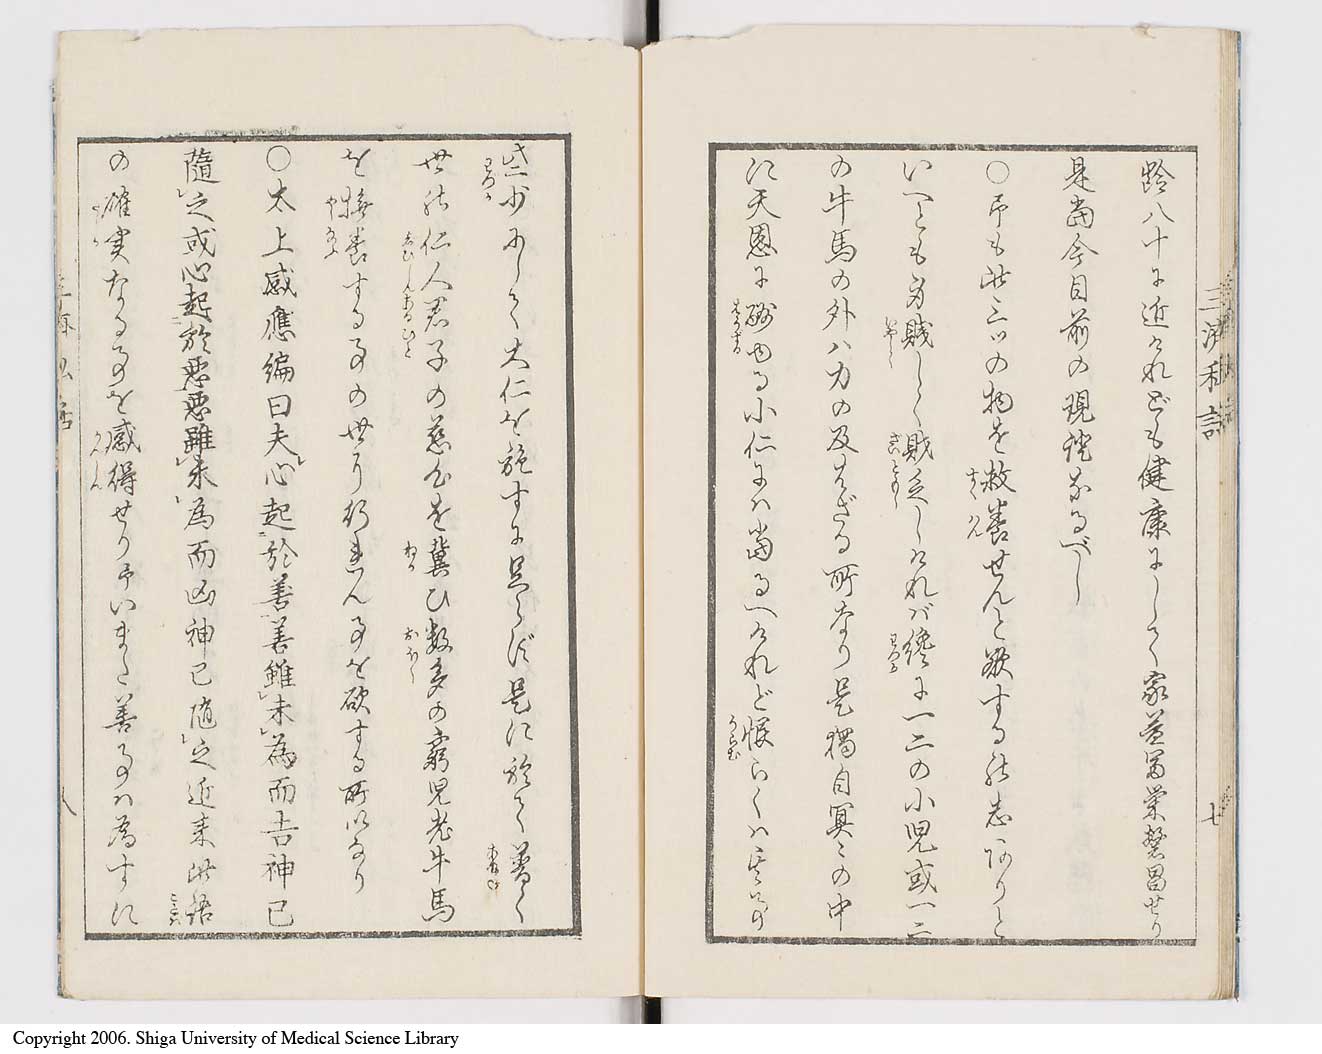 齢八十に近けれども健康にして家益冨栄繁昌せり
是當今目前の現證なるべし
○予も此三ツの物を救養せんと欲する的志ありと
いへども身賎しく財乏しければ纔に一二の小児或一二
の牛馬の外ハ力の及ばざる所なり是獨自冥々の中
に天恩に酬ゆる小仁にハ當るへけれど恨らくハ
些少にして大仁を施すに足らず是に於て普く
世的仁人君子の慈心を冀ひ数多の窮児老牛馬
を豢養する事の世に行れん事を欲する所以なり
○太上感應編曰夫心起於善善雖未為而吉神已
隨之或心起於悪悪雖未為而凶神已随之近来此語
の確実なる事を感得せり予いまた善事ハ為すに
三済私話
七
八
Copyright 2006. Shiga University of Medical Science Library